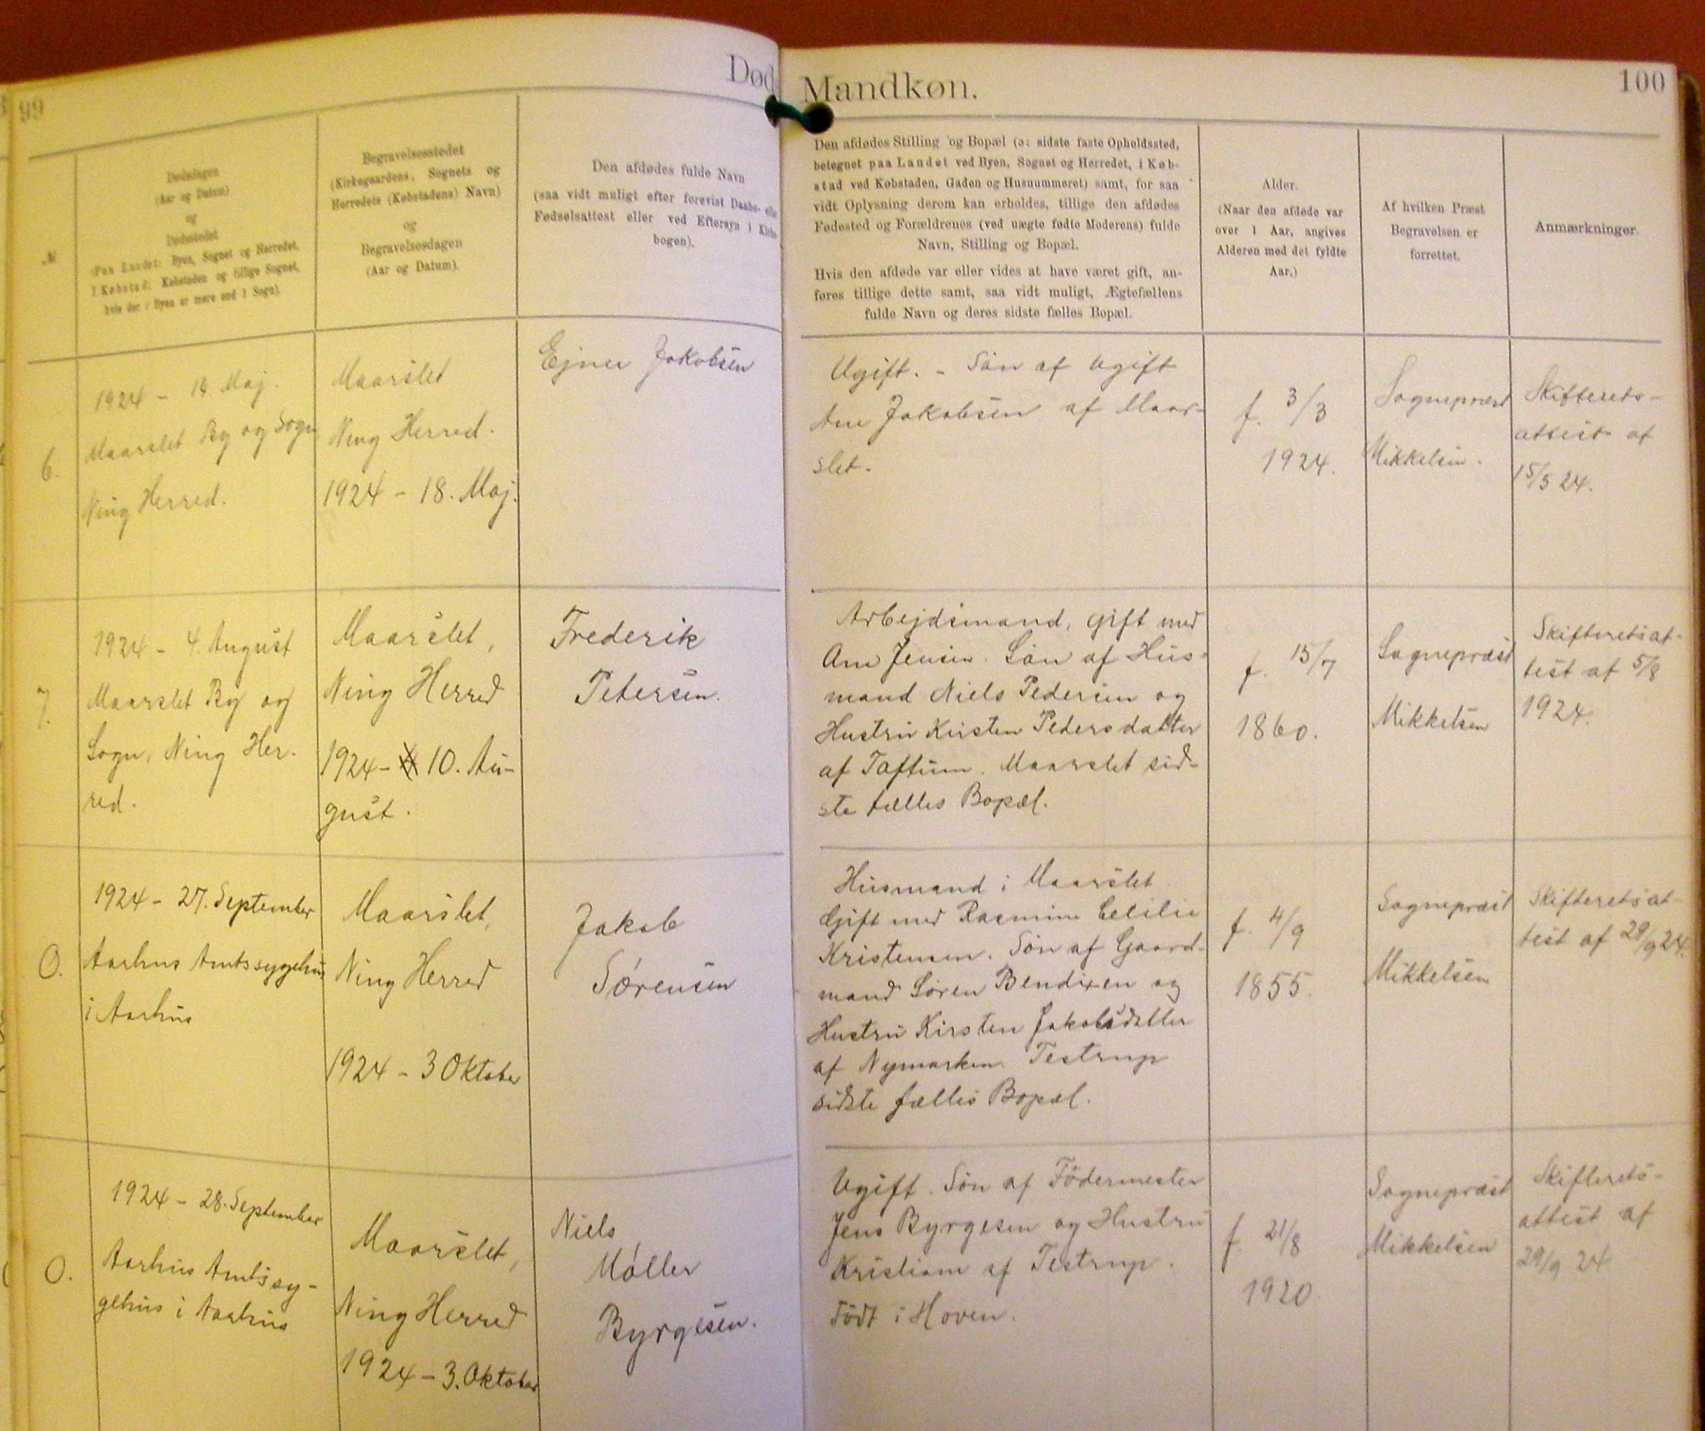 99
Død
Mandkøn.
100
№
Dødsdagen
(Aar og Datum)
og
Dødsstedet
(Paa Landet: Byen, Sognet og Herredet,
i Købstad: Købstaden og tillige Sognet,
hvis der i Byen er mere end 1 Sogn).
Begravelsesstedet
(Kirkegaardens, Sognets og
Herredets (Købstadens) Navn)
og
Begravelsesdagen
(Aar og Datum).
Den afdødes fulde Navn
(saa vidt muligt efter forevist Daabs- eller
Fødselsattest eller ved Eftersyn i Kirke-
bogen).
Den afdødes Stilling og Bopæl (ɔ: sidste faste Opholdssted,
betegnet paa Landet ved Byen, Sognet og Herredet, i Køb-
stad ved Købstaden, Gaden og Husnummeret) samt, for saa
vidt Oplysning derom kan erholdes, tillige den afdødes
Fødested og Forældrenes (ved uægte fødte Moderens) fulde
Navn, Stilling og Bopæl.
Hvis den afdøde var eller vides at have været gift, an-
føres tillige dette samt, saa vidt muligt, Ægtefællens
fulde Navn og deres sidste fælles Bopæl.
Alder.
(Naar den afdøde var
over 1 Aar, angives
Alderen med det fyldte
Aar.)
Af hvilken Præst
Begravelsen er
forrettet.
Anmærkninger.
6.
1924 - 14 Maj.
Maarslet By og Sogn
Ning Herred.
Maarslet
Ning Herred.
1924 - 18. Maj.
Ejner Jakobsen
Ugift. - Søn af Ugift
Ane Jakobsen af Maar-
slet.
f. 3/3
1924.
Sognepræst
Mikkelsen.
Skifterets-
attest af
15/5 24.
7.
1924 - 4. August
Maarslet By og
Sogn, Ning Her-
red.
Maarslet,
Ning Herred
1924 - 10. Au-
gust.
Frederik
Petersen.
Arbejdsmand, gift med
Ane Jensen. Søn af Hus-
mand Niels Pedersen og
Hustru Kirsten Pedersdatter
af Taftum. Maarslet sid-
ste fælles Bopæl.
f. 15/7
1860.
Sognepræst
Mikkelsen
Skifteretsat-
test af 5/8
1924.
0.
1924 - 27. September
Aarhus Amtssygehus
i Aarhus
Maarslet,
Ning Herred
1924 - 3 Oktober
Jakob
Sørensen
Husmand i Maarslet
Gift med Rasmine Cecilie
Kristensen. Søn af Gaard-
mand Søren Bendixen og
Hustru Kirsten Jakobsdatter
af Nymarken. Testrup
sidste fælles Bopæl.
f. 4/9
1855.
Sognepræst
Mikkelsen
Skifteretsat-
test af 29/9 24.
0.
1924 - 28. September
Aarhus Amtssy-
gehus i Aarhus
Maarslet,
Ning Herred
1924 - 3. Oktober
Niels
Møller
Byrgesen.
Ugift. Søn af Fodermester
Jens Byrgesen og Hustru
Kristiane af Testrup.
Født i Hoven.
f. 21/8
1920.
Sognepræst
Mikkelsen
Skifterets-
attest af
29/9 24